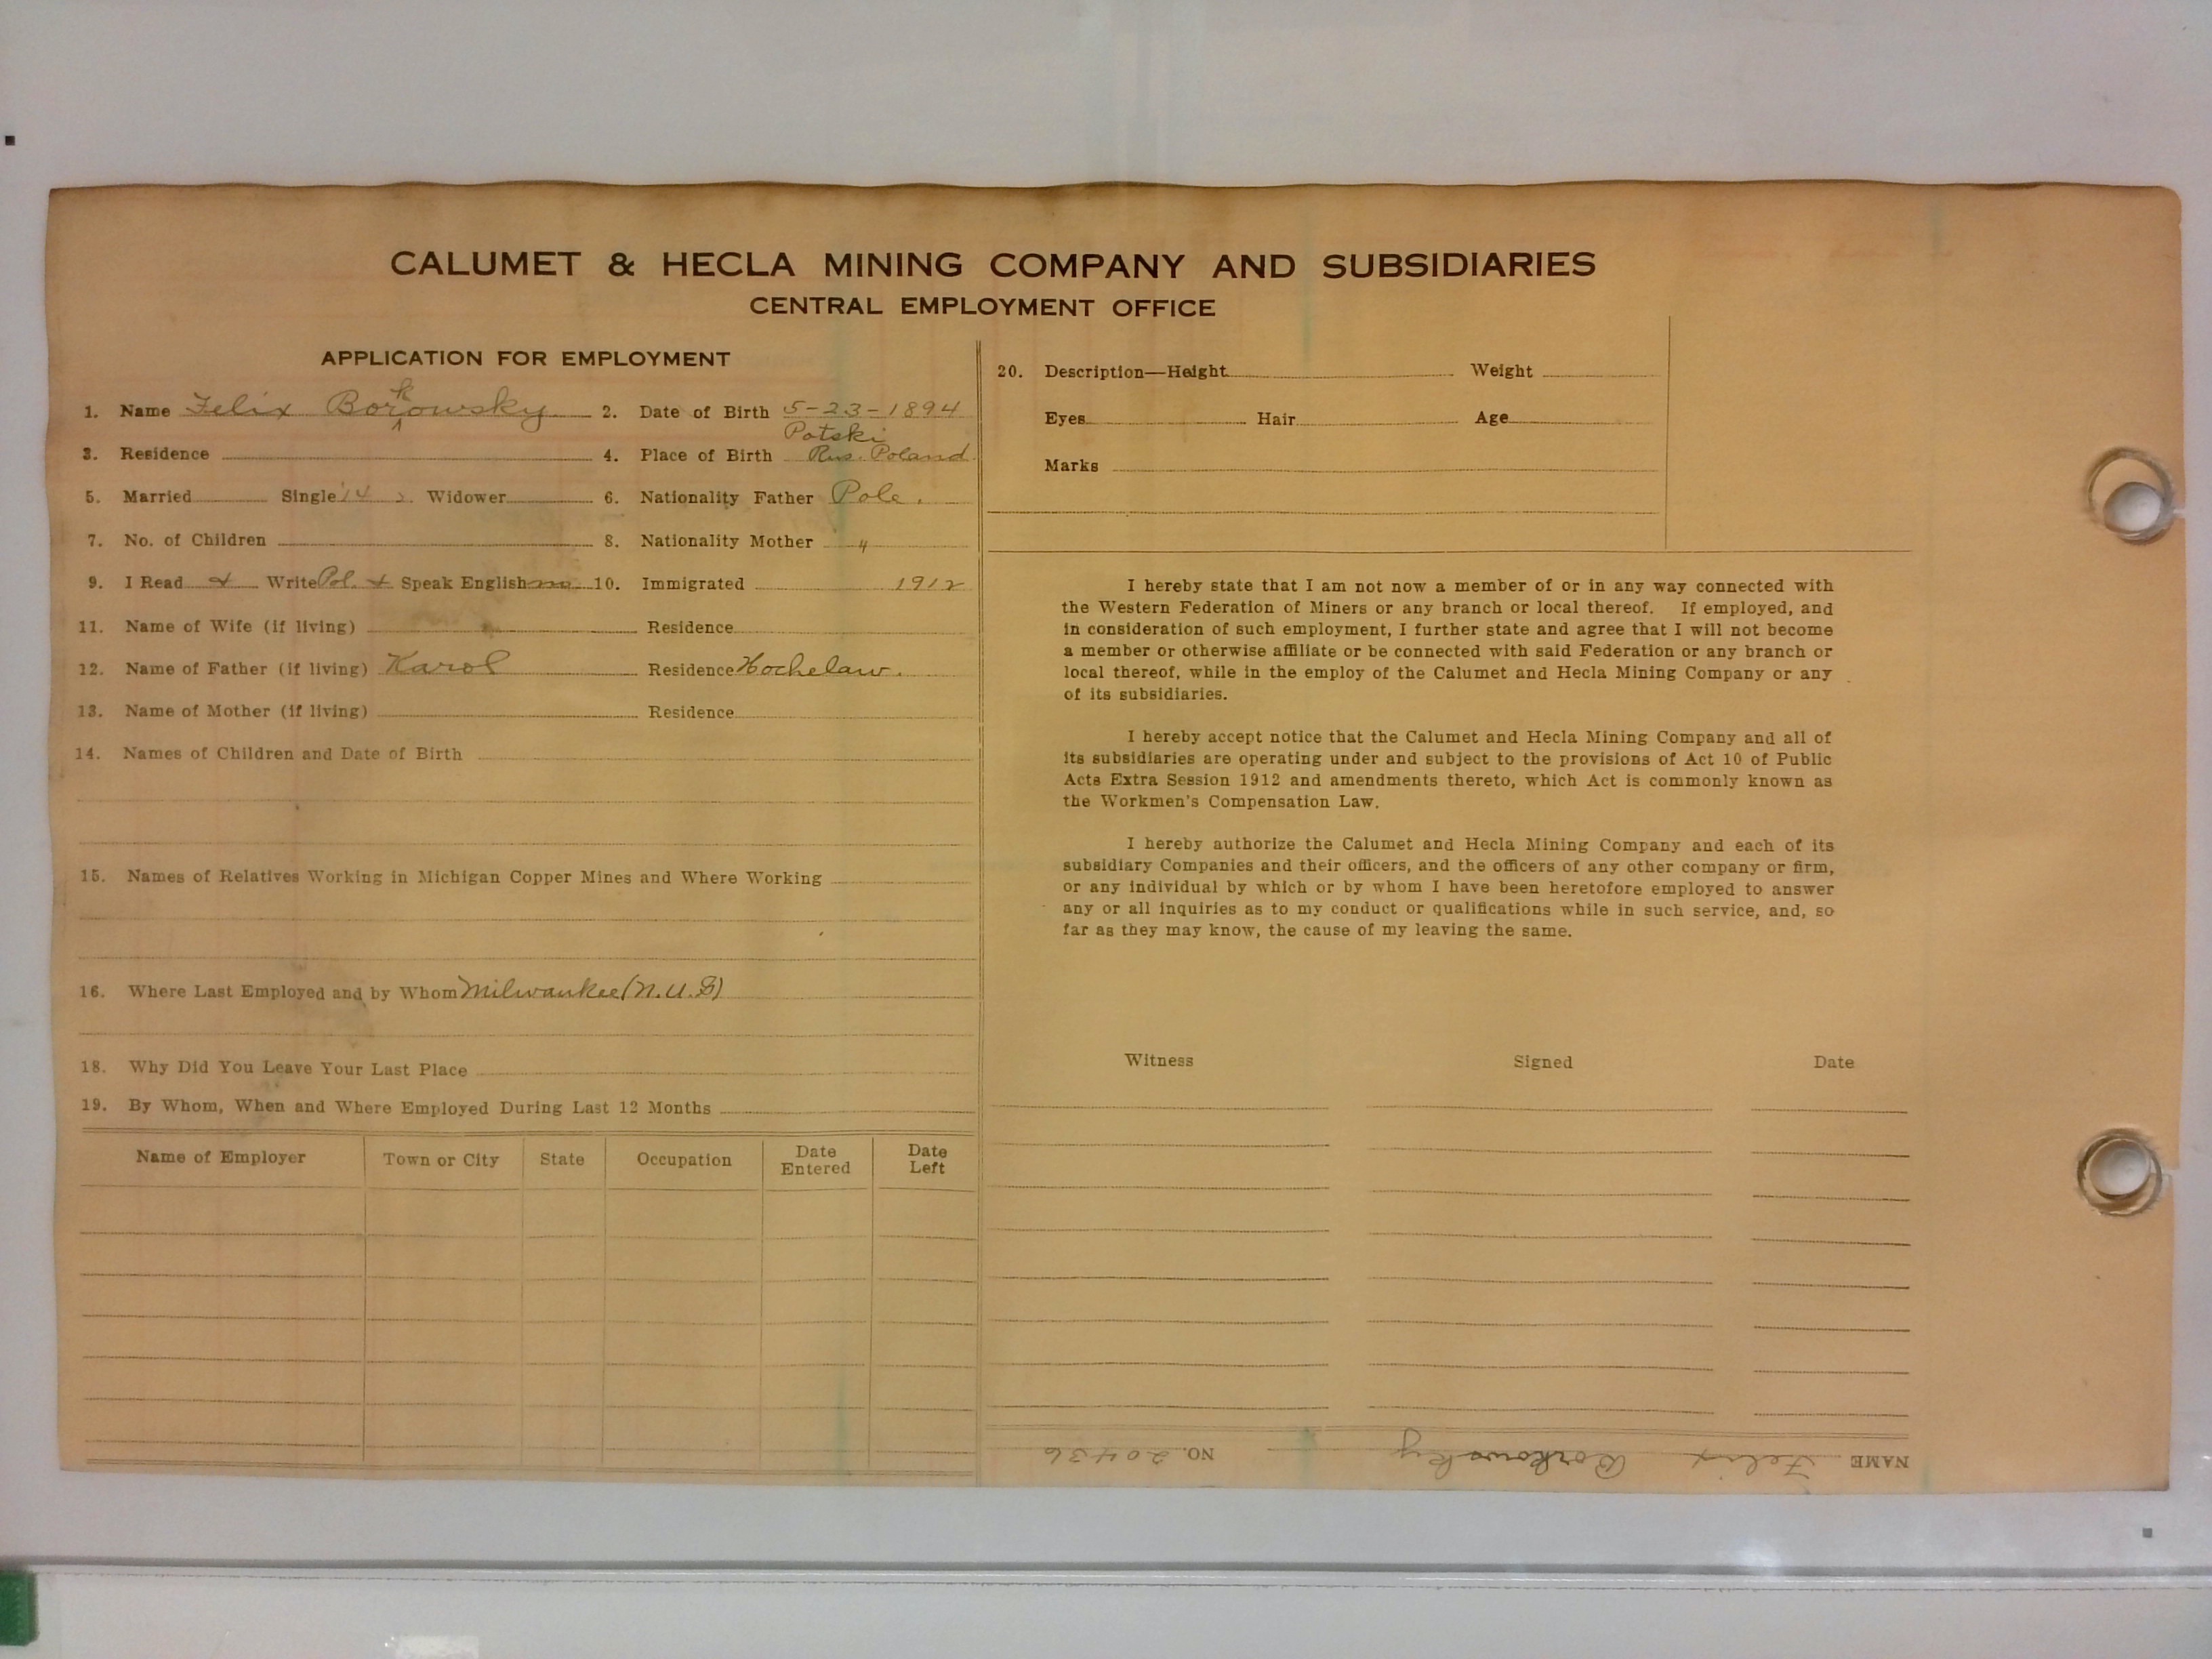 CALUMET & HECLA MINING COMPANY AND SUBSIDIARIES
CENTRAL EMPLOYMENT OFFICE
APPLICATION FOR EMPLOYMENT
1. Name Felix Borkowsky 2. Date of Birth 5-23-1894
Potski
3. Residence 4. Place of Birth Rus. Poland
5. Married Single '14 Widower 6. Nationality Father Pole.
7. No. of Children 8. Nationality Mother "
9. I Read & Write Pol. & Speak English no 10. Immigrated 1912
11. Name of Wife (if living) Residence
12. Name of Father (if living) Karol Residence Hochelaw.
13. Name of Mother (if living) Residence
14. Names of Children and Date of Birth
15. Names of Relatives Working in Michigan Copper Mines and Where Working
16. Where Last Employed and by Whom Milwaukee (N.U.S)
18. Why Did You Leave Your Last Place
19. By Whom, When and Where Employed During Last 12 Months
Name of Employer Town or City State Occupation Date Entered Date Left
20. Description—Height Weight
Eyes Hair Age
Marks
I hereby state that I am not now a member of or in any way connected with
the Western Federation of Miners or any branch or local thereof. If employed, and
in consideration of such employment, I further state and agree that I will not become
a member or otherwise affiliate or be connected with said Federation or any branch or
local thereof, while in the employ of the Calumet and Hecla Mining Company or any
of its subsidiaries.
I hereby accept notice that the Calumet and Hecla Mining Company and all of
its subsidiaries are operating under and subject to the provisions of Act 10 of Public
Acts Extra Session 1912 and amendments thereto, which Act is commonly known as
the Workmen's Compensation Law.
I hereby authorize the Calumet and Hecla Mining Company and each of its
subsidiary Companies and their officers, and the officers of any other company or firm,
or any individual by which or by whom I have been heretofore employed to answer
any or all inquiries as to my conduct or qualifications while in such service, and, so
far as they may know, the cause of my leaving the same.
Witness Signed Date
NAME Felix Borkowsky NO. 20436